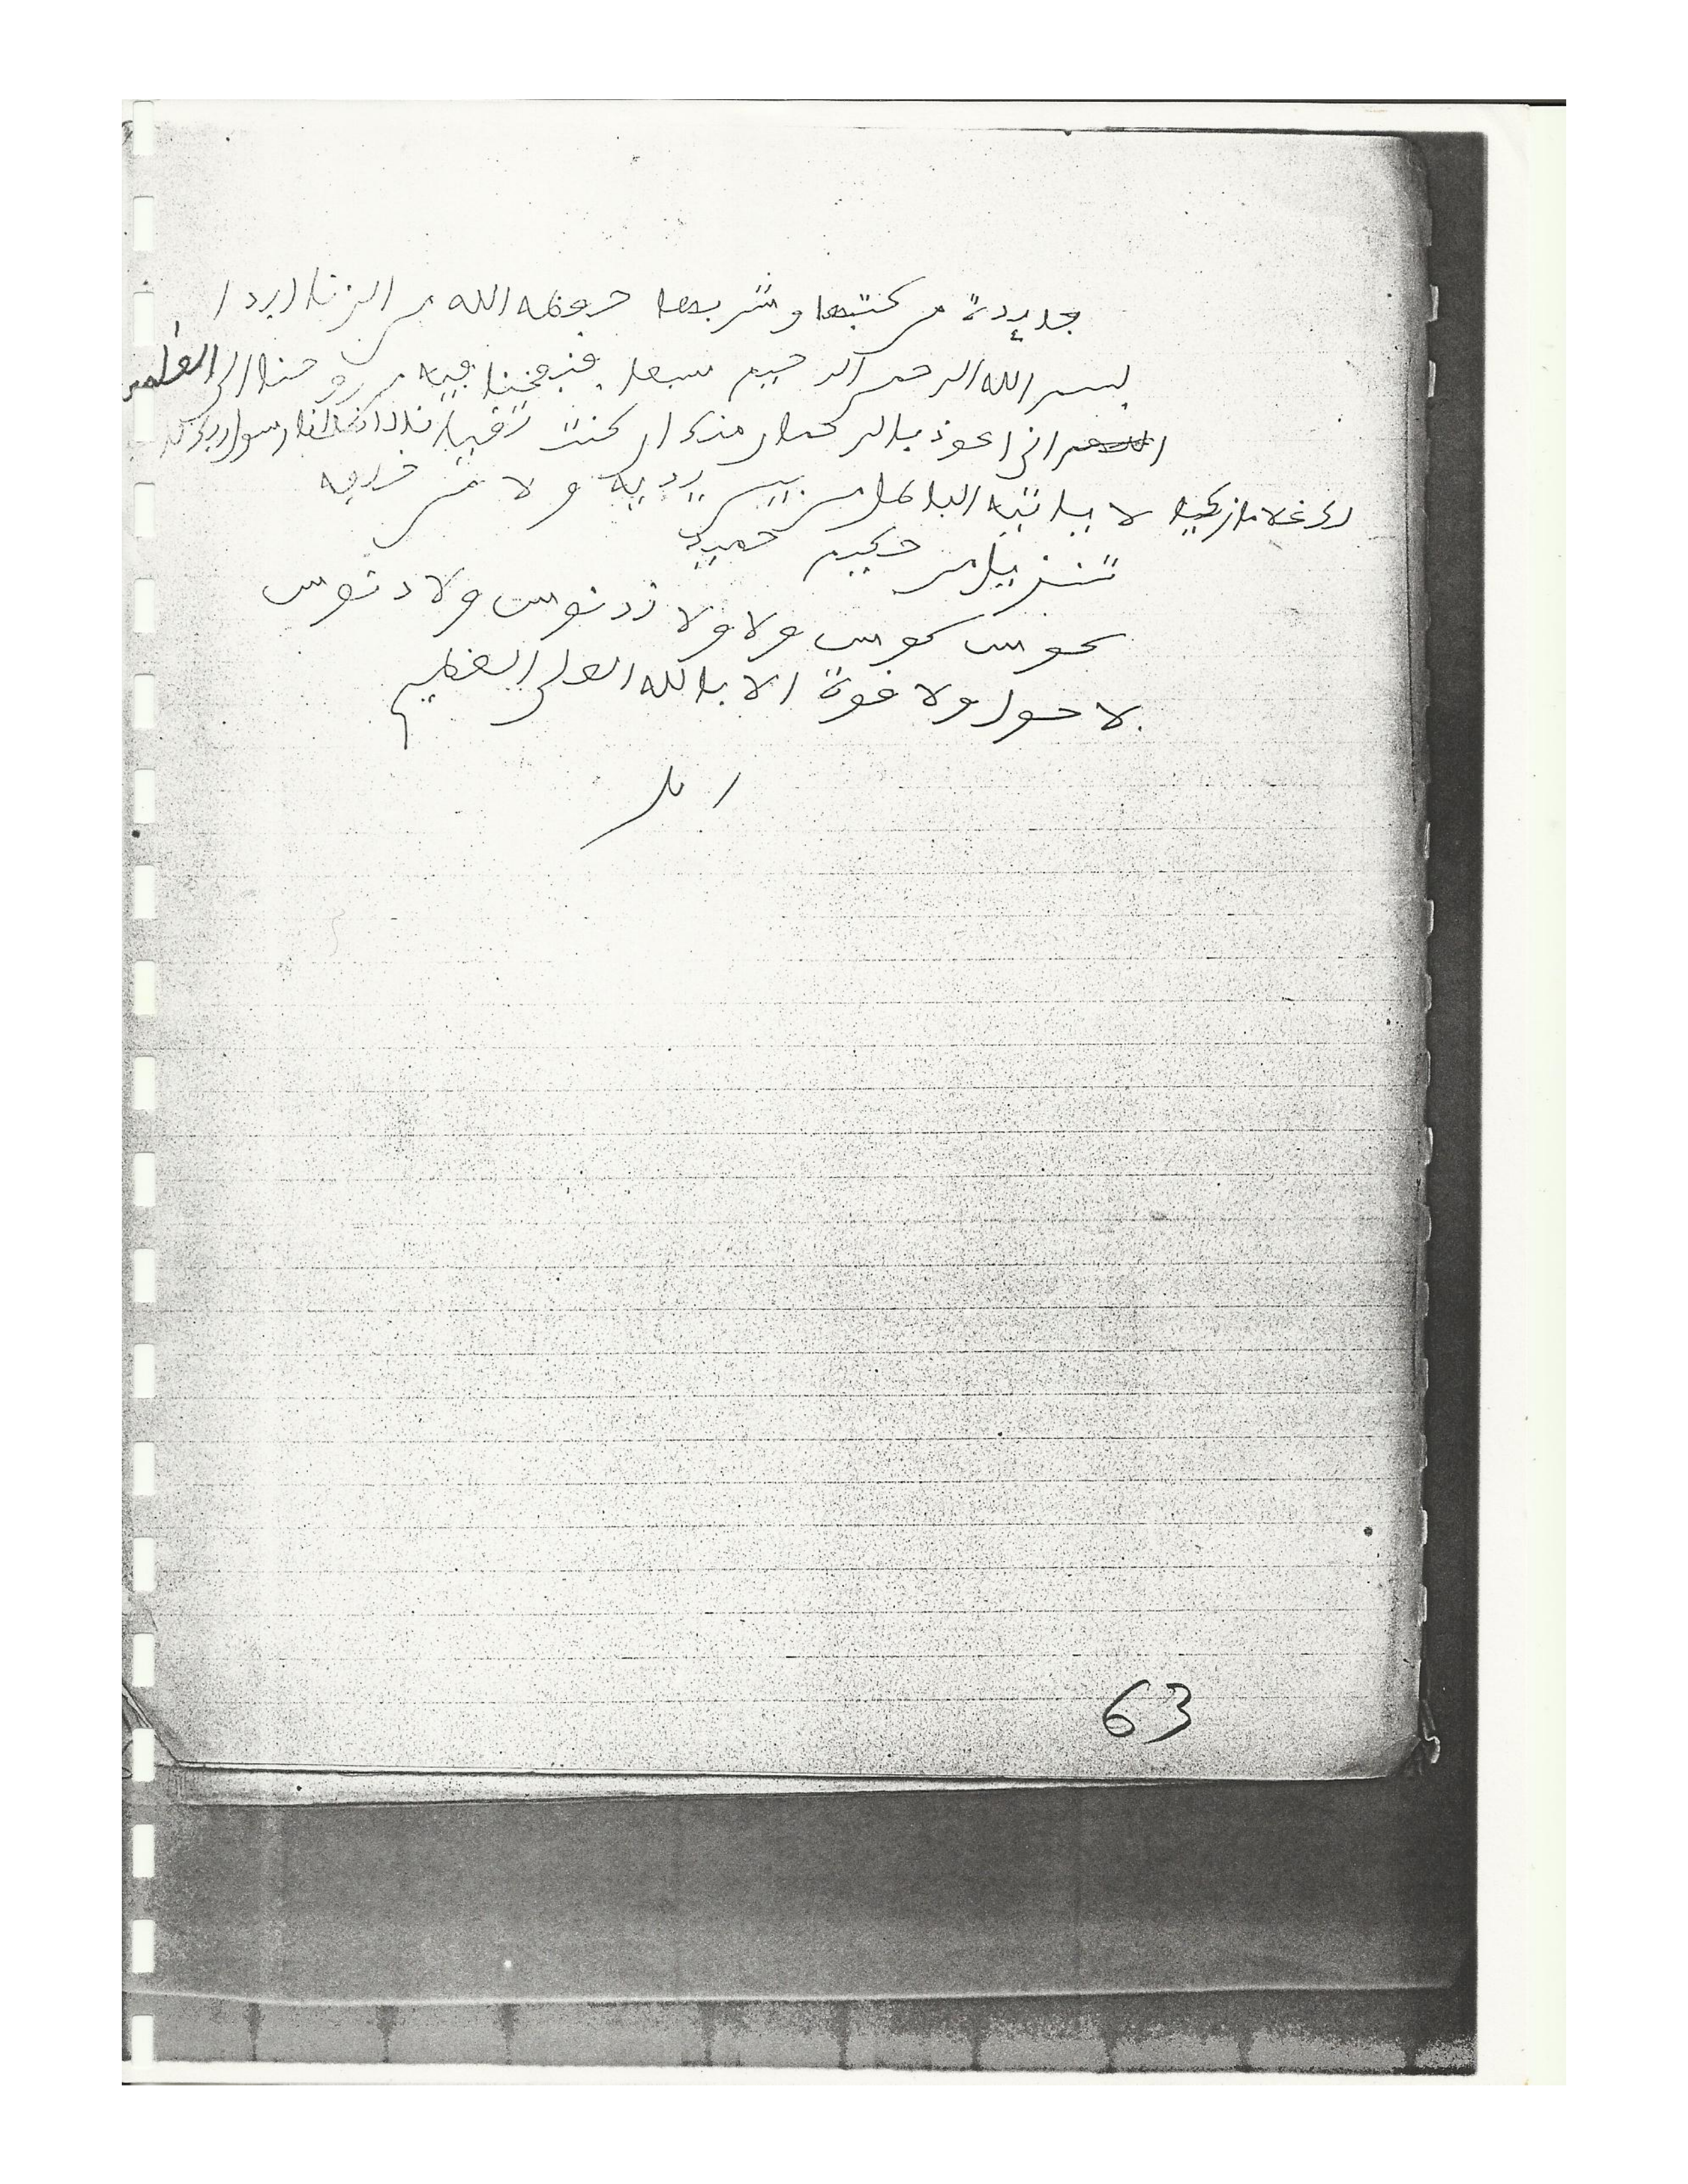 جديدة من كتبها وشربها حفظه الله من الزنا ابدا
بسم الله الرحمن الرحيم سبعا فنفخنا فيه من روحنا الى العلمين
انى اعوذ بالرحمان منك ان كنت تقيا رسول ربك
لك غلاما زكيا لا ياتيه الباطل من بين يديه ولا من خلفه
تنزيل من حكيم حميد
كوس ولا ولا ولا دنوس
لا حول ولا قوة الا بالله العلى العظيم
امين
63